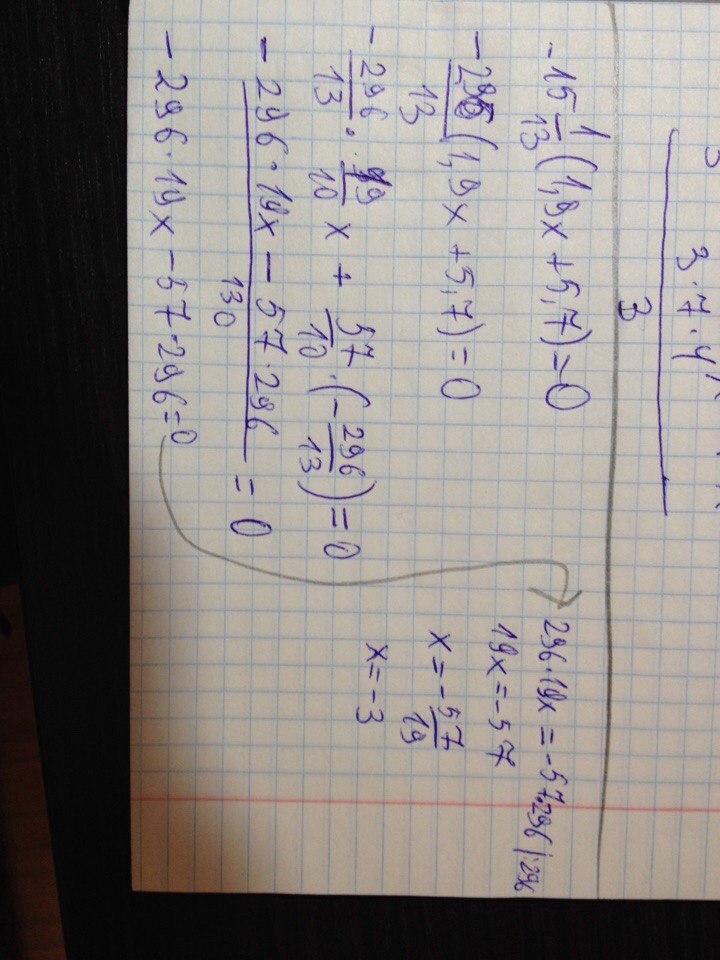 3·7·4
3
-15 1/13 (1,9x + 5,7) = 0
-296/13 (1,9x + 5,7) = 0
-296/13 · 19/10 x + 57/10 · (-296/13) = 0
(-296·19x - 57·296)/130 = 0
-296·19x - 57·296 = 0
296·19x = -57·296 |:296
19x = -57
x = -57/19
x = -3